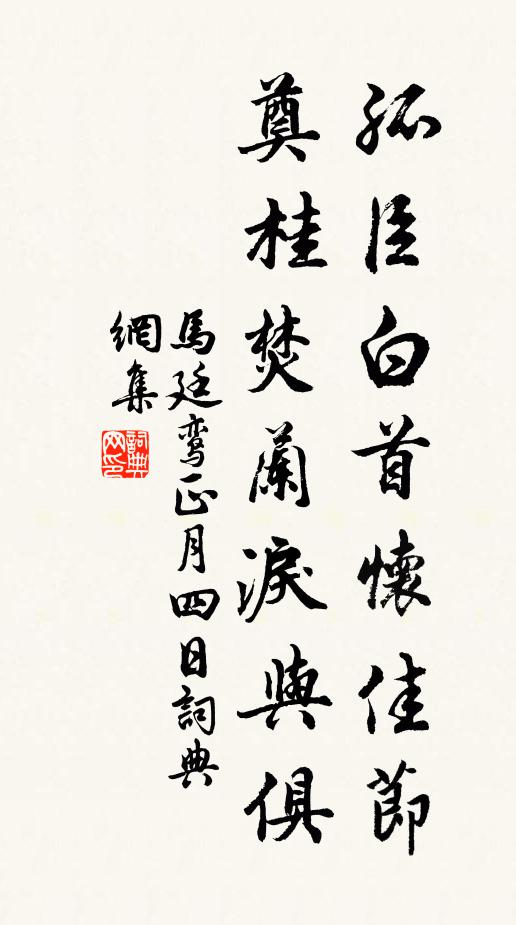 孤臣白首懷佳節
奠桂焚蘭淚與俱
馬廷鸾正月四日詞典
網集
詞典网印